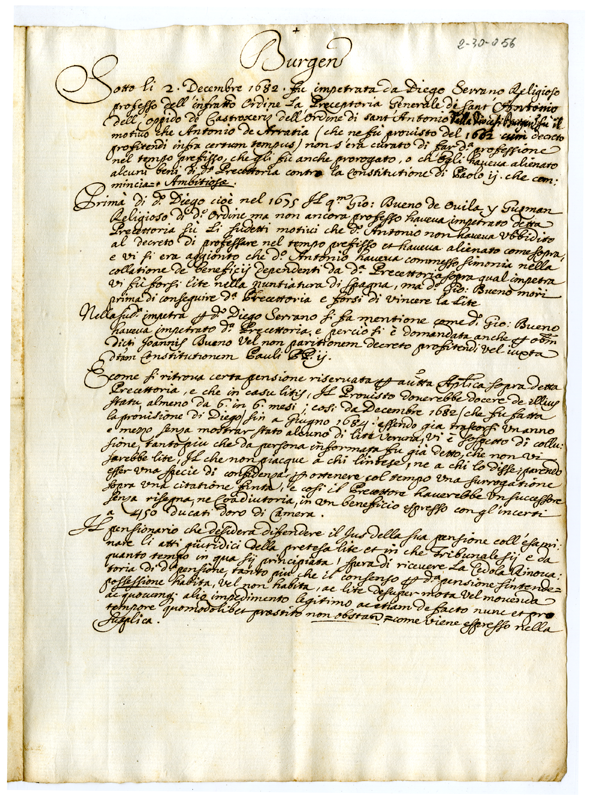 2-30-056
Burgen
Sotto li 2. Decembre 1682. fu impetrata da Diego Serrano Religioso
professo dell' infratto Ordine La Preceptoria Generale di sant Antonio
dell' oppido di Castroxeriz dell' Ordine di sant Antonio
motivo che Antonio de Arratia (che ne fu provisto del 1662 cum decreto
profitendi infra certum tempus) non s'era curato di far dª professione
nel tempo prefisso, che gli fu anche prorogato, o ch' egli haveva alienato
alcuni beni di dª Precettoria contro la Constitutione di Paolo ij. che com=
mincia = Ambitiose.
Prima di dº Diego cioè nel 1675 Il qm Gio: Bueno de Avila y Guzman
Religioso dº dº Ordine ma non ancora professo haveva impetrato detta
Precettoria su li sudetti motivi che dº Antonio non haveva ubbidito
al decreto di professare nel tempo prefisso et haveva alienato come sopra,
e vi si era aggionto che dº Antonio haveva commesso simonia nella
collatione de beneficij dependenti da dª Precettoria sopra qual impetra
vi fu forsi lite nella nuntiatura di Spagna, ma dº Gio: Bueno morì
prima di conseguire dª Precettoria e forsi di vincere la lite
Nella impetra dº Diego Serrano si fa mentione come dº Gio: Bueno
haveva impetrato dª Precettoria, e perciò si è domandata anche
dicti Joannis Bueno vel non paritionem decreto profitendi vel iuxta
Constitutionem Pauli PP ij.
E come si ritrova certa pensione riservata Aplica sopra detta
Precettoria, e che in casu litis, Il Provisto doverebbe docere de illius
statu almeno da 6. in 6. mesi; così da Decembre 1682 (che fu fatta
la provisione di Diego) sin a Giugno 1684. essendo già trascorsi un anno
e mezzo senza mostrar stato alcuno di lite veruna, vi è sospetto di collu=
sione, tanto più che da persona informata fu già detto, che non vi
sarebbe lite, Il che non piacque a chi l'intese, ne a chi lo disse, parendo
esser una specie di confidenza ottenere col tempo una surrogatione
sopra una citatione finta, e così il Precettore haverebbe un successore
senza risegna, ne Coadiutoria, in un beneficio espresso con gl' incerti
a 450 ducati d'oro di Camera.
Il pensionario che desidera difendere il Jus della sua pensione coll' esami=
nare li atti giuridici della pretesa lite et in che Tribunale sij, e da
quanto tempo in qua fu principiata, spera di ricevere La Cedola Rinova=
toria di dª pensione, tanto più che il consenso dª pensione s'intende =
possessione habita, vel non habita, ac lite desuper mota vel movenda
ac quocunq. alio impedimento legitimo ac etiam de facto nunc et pro
tempore quomodolibet prestito non obstan = come viene espresso nella
supplica.